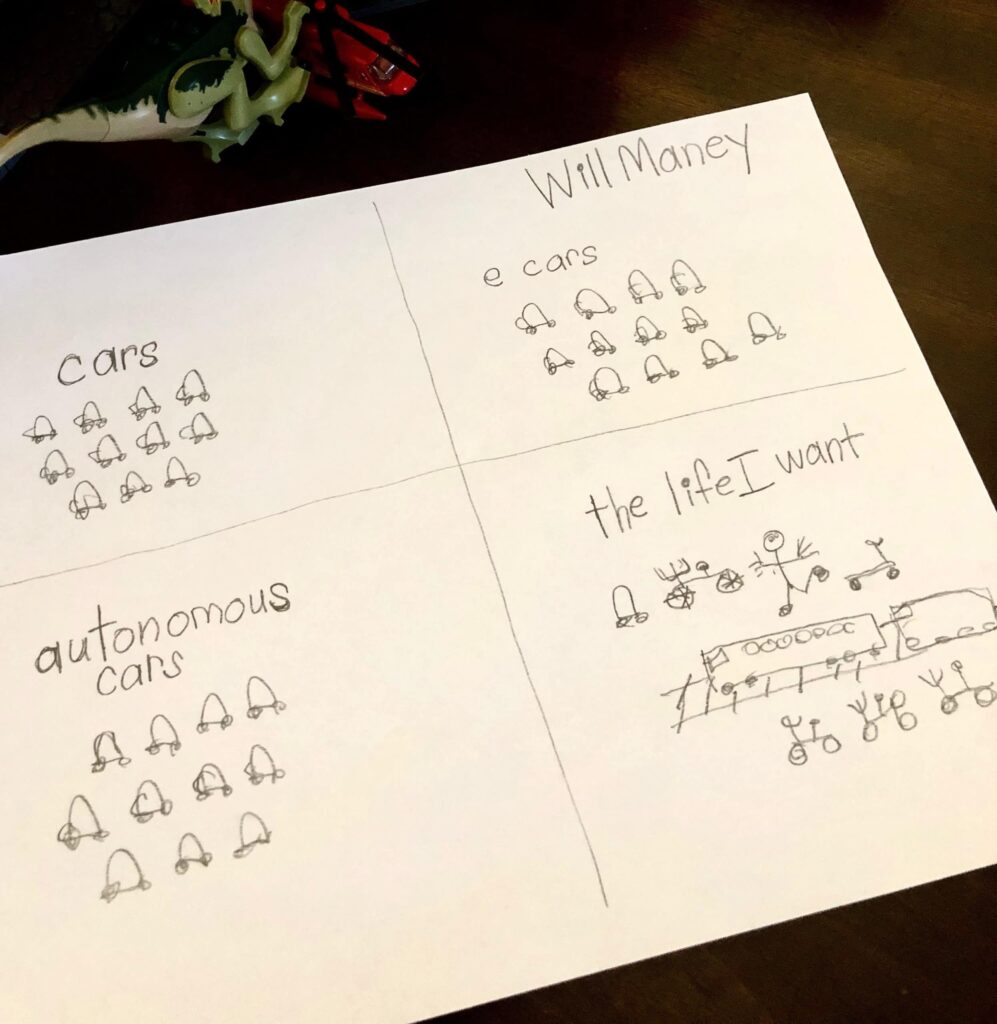 Will Maney
cars
e cars
autonomous
cars
the life I want